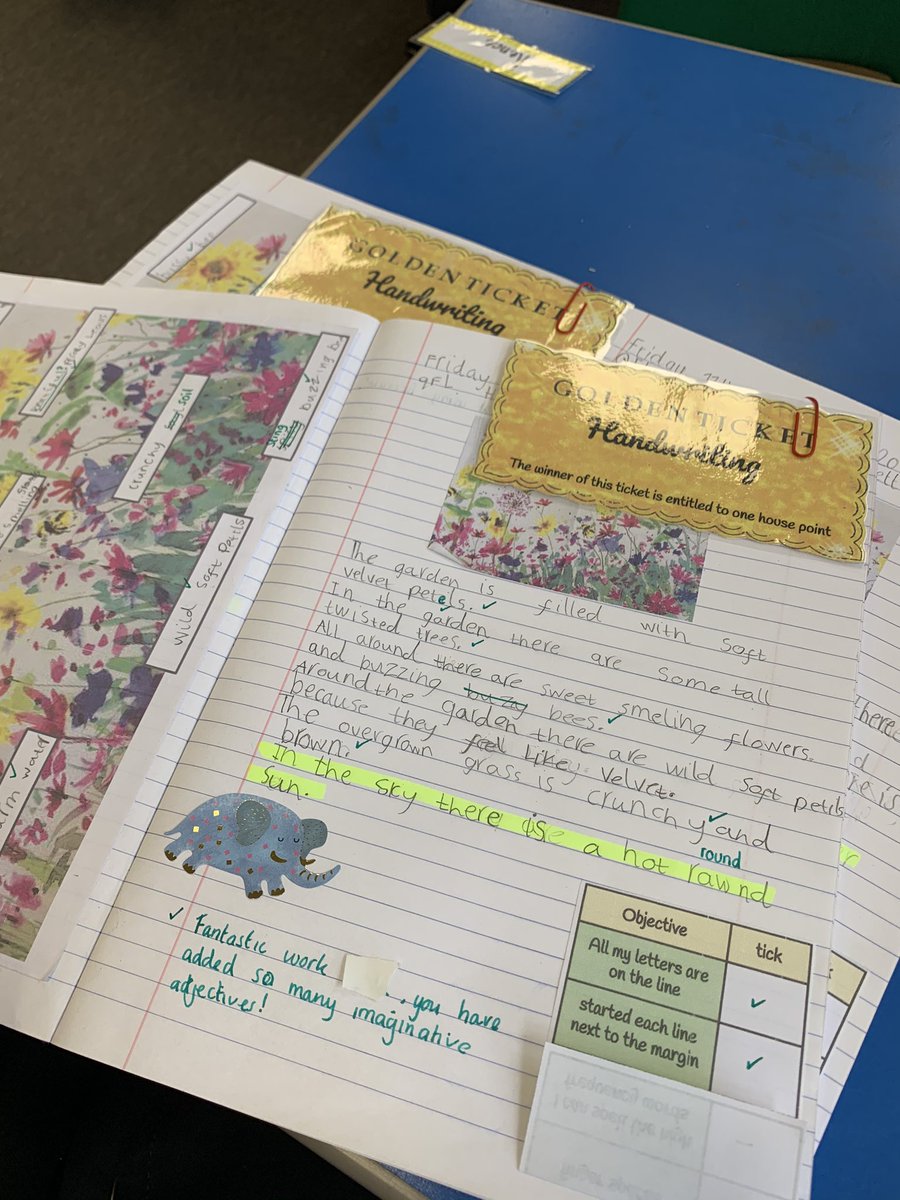 GOLDEN TICKET
Handwriting
GOLDEN TICKET
Handwriting
The winner of this ticket is entitled to one house point
Friday
Friday
crunchy soil
buzzing
Wild Soft Petils
warm water
The garden is filled with soft
velvet petels.
In the garden there are Some tall
twisted trees.
All around there are sweet smeling flowers.
and buzzing buzzy bees.
Around the garden there are wild soft petils
because they feel like velvet.
The overgrown grass is crunchy and
brown.
In the sky there is a hot rawnd
round
sun.
Fantastic work ...you have
added so many imaginative
adjectives!
Objective
tick
All my letters are
on the line
started each line
next to the margin